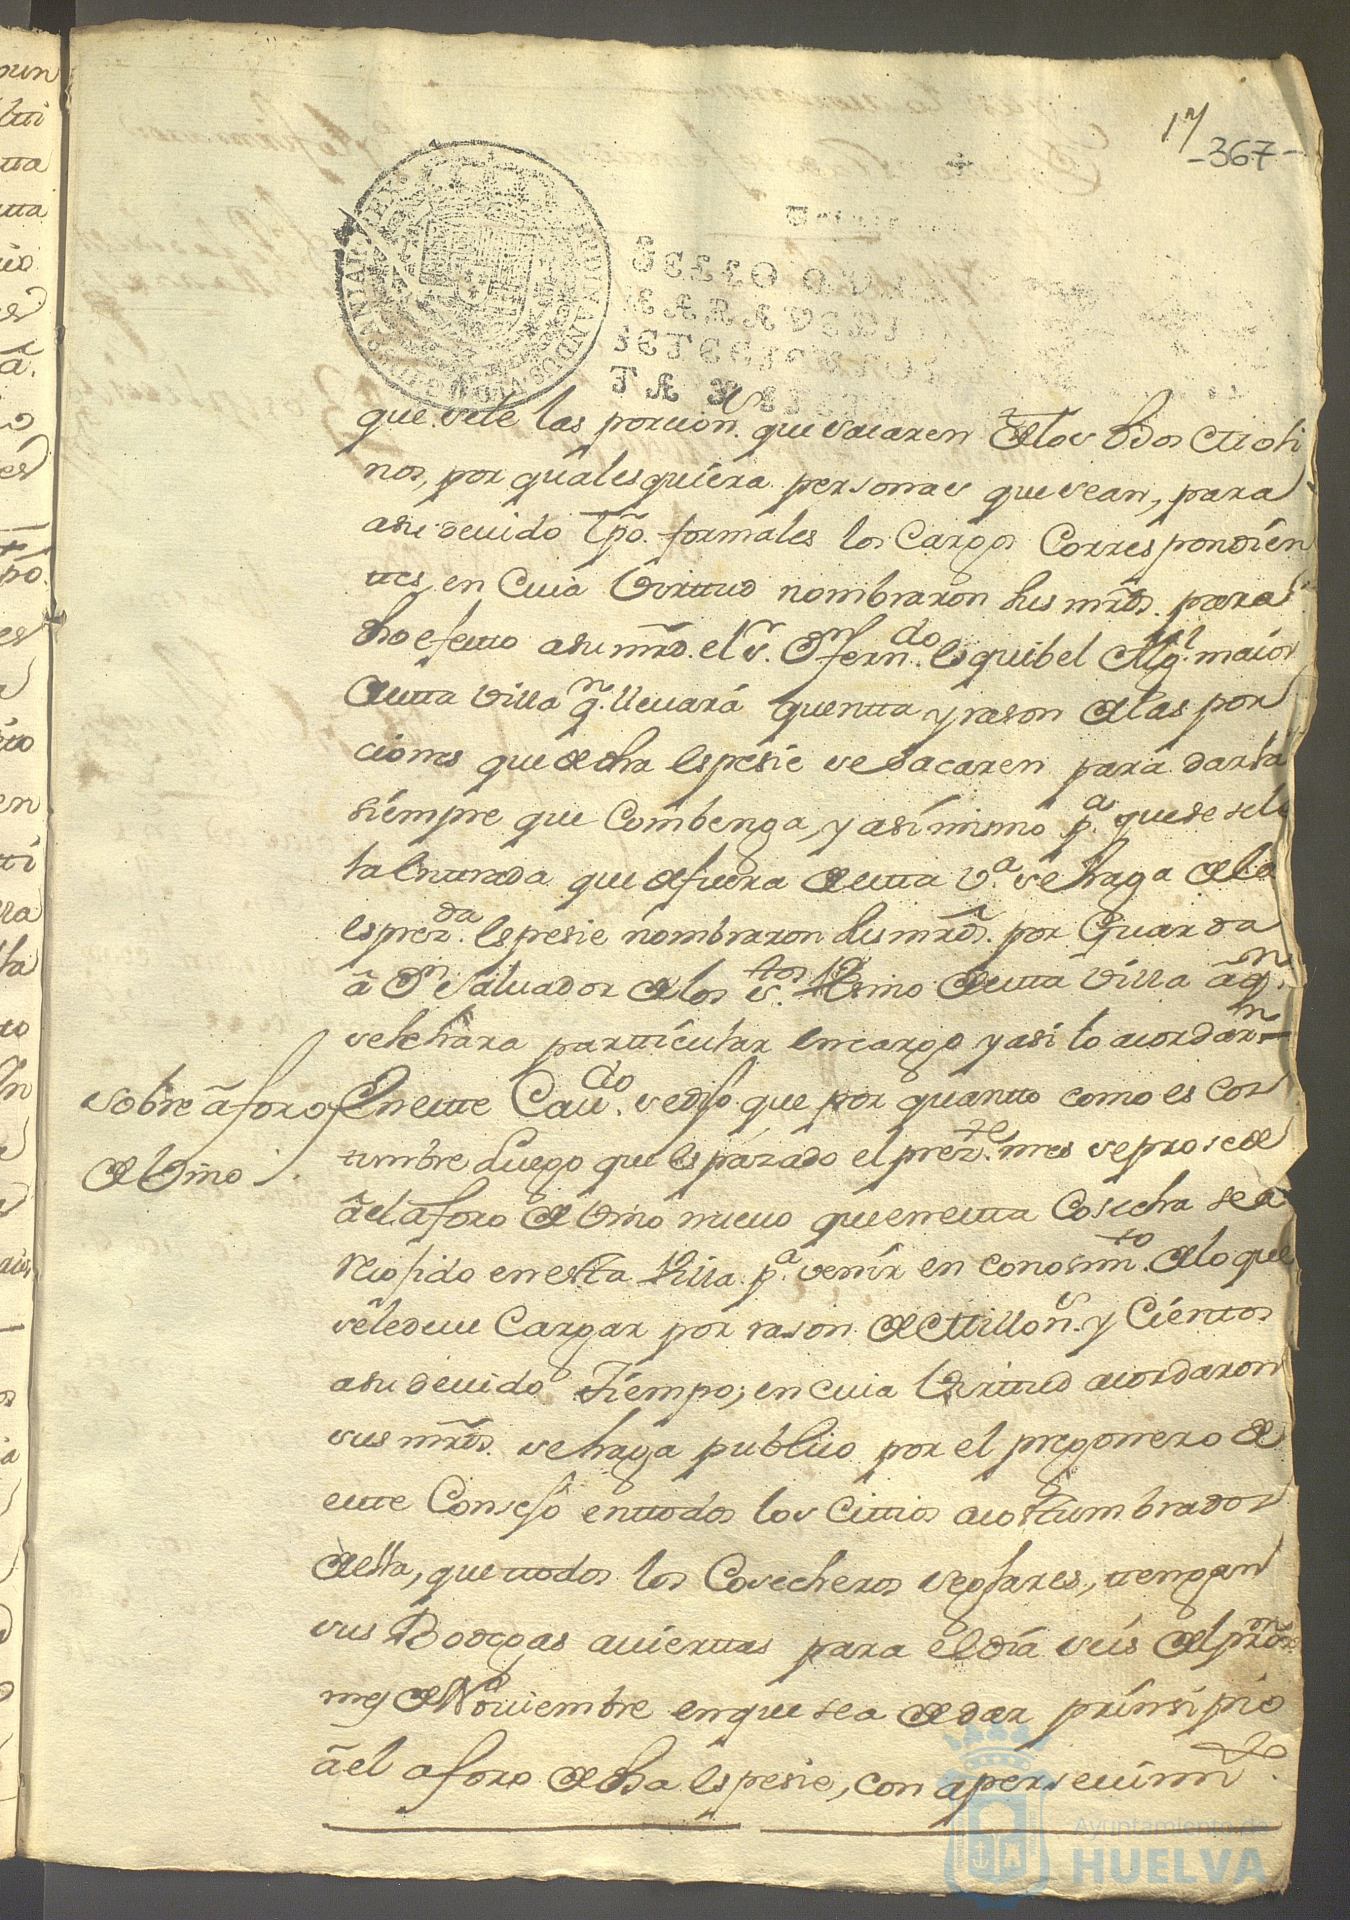 17
-367-
que vele las porcion.s que sacaren de los hdos Moli
nos, por qualesquiera personas que sean, para
a su devido tpo. formales los Cargos Correspondien
ttes, en Cuia Virttud nombraron sus mrds. para
dho efectto a su mrd. el Sr. Dn fern.do Esquibel Alg.l maior
de estta Villa q.n llevará quentta y rason de las por
ciones que de dha Espesie se sacaren para darla
siempre que Combenga, y asi mismo p.a que se sele
la Enttrada que de fuera de estta V.a se haga de la
esprez.da Espesie nombraron sus mrds. por Guarda
à Dn Salvador de los S.tos Vesino de estta Villa à q.n
se le hara partticular encargo y asi lo acordar.n =
sobre àforo
de Vino.
En estte Cav.do se dijo que por quantto como es cos
tumbre Luego que es pazado el prez.te mes se prosede
à el aforo de Vino nuevo que en estta Cosecha se a
recojido en esta Villa p.a venir en conosim.to de lo que
se le deve Cargar por rason de Millon.s y Cienttos
a su devido Tiempo; en cuia Virttud acordaron
sus mrds. se haga publico por el pregonero de
estte Consejo en ttodos los Cittios acostumbrados
de ella, que ttodos los Cosecheros Seglares, ttengan
sus Bodegas aviertas para el dia seis del prox.mo
mes de Noviembre en que se a de dar prinsipio
à el aforo de dha Espesie, con apersevim.to
Ayuntamiento de
HUELVA